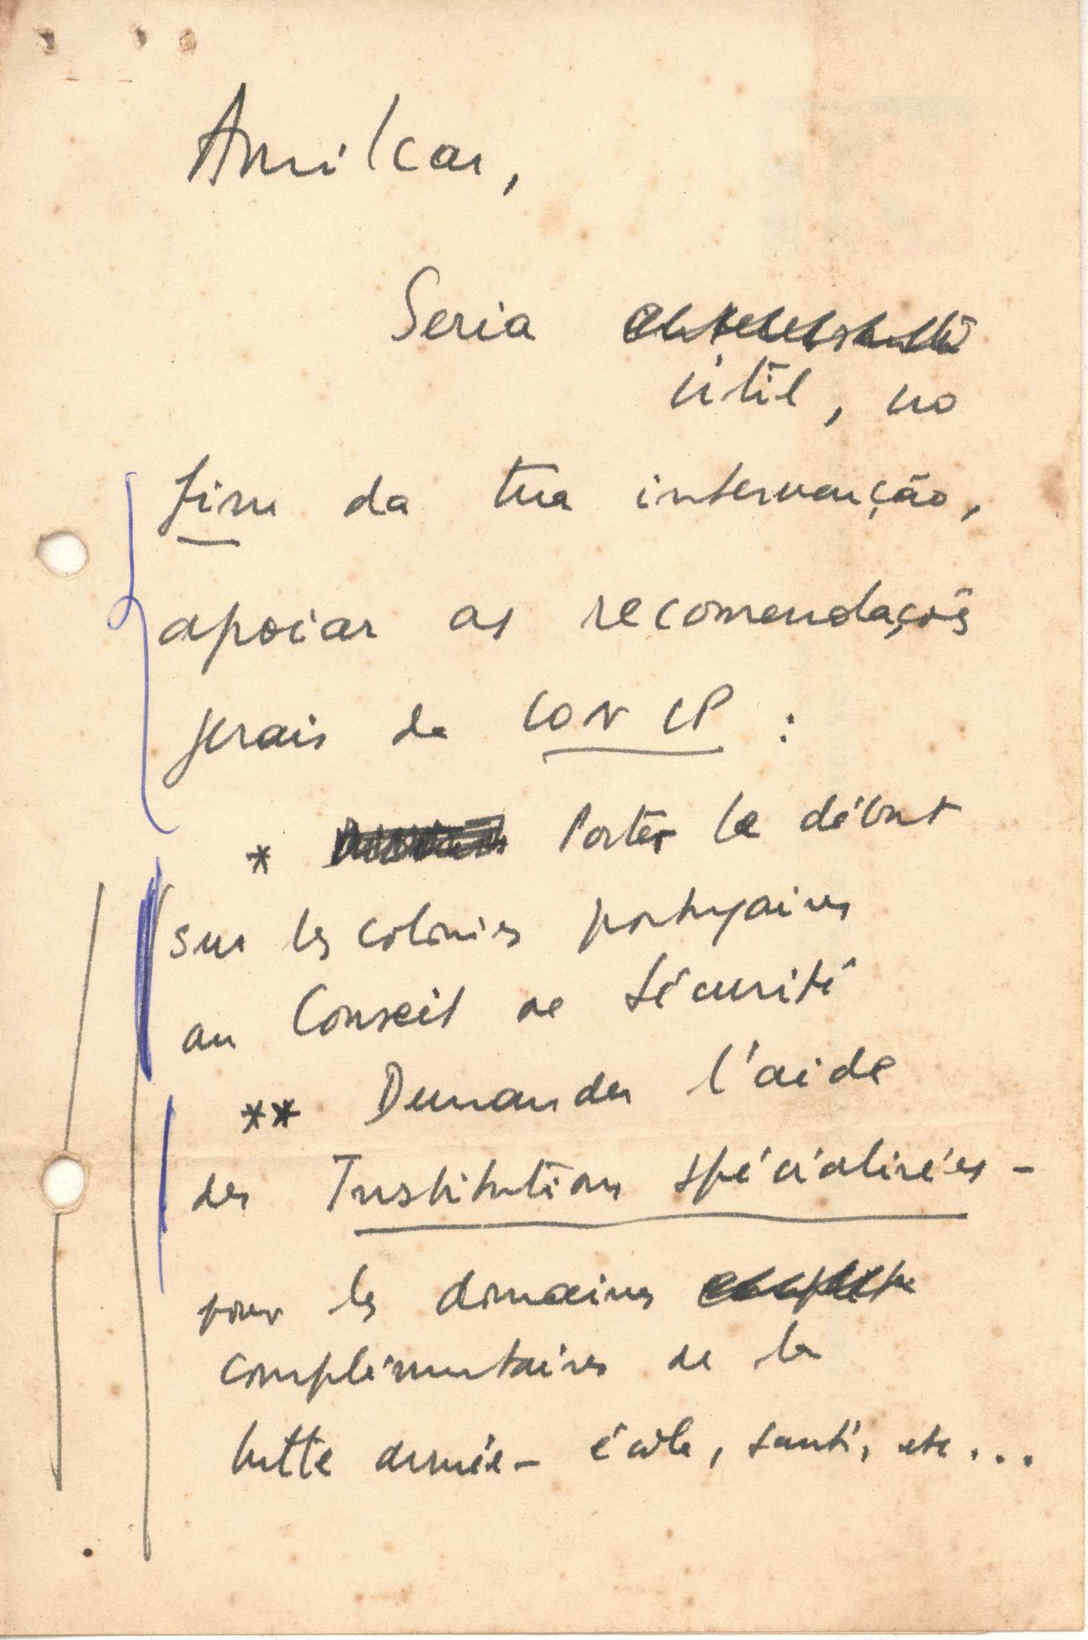 Amilcar,
Seria
útil, no
fim da tua intervenção,
apoiar as recomendações
gerais da CONCP :
* Porter le débat
sur les colonies portugaises
au Conseil de Sécurité
** Demander l'aide
des Institutions spécialisées -
pour les domaines
complémentaires de la
lutte armée - école, santé, etc...